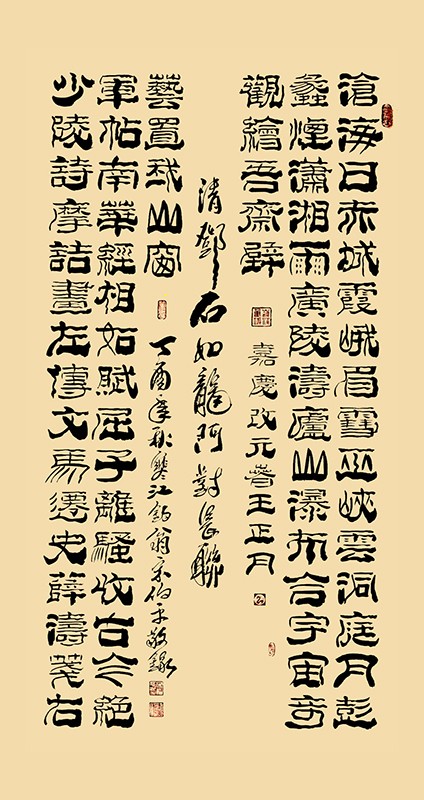 滄海日赤城霞峨眉雪巫峽雲洞庭月彭
蠡煙瀟湘雨廣陵濤廬山瀑布合宇宙奇
觀繪吾齋壁
嘉慶改元春王正月
清鄧石如龍門對長聯
少陵詩摩詰畫左傳文馬遷史薛濤箋右
軍帖南華經相如賦屈子離騷收古今絕
藝置我山窗
丁酉年秋雙江釣翁宋伯平敬錄